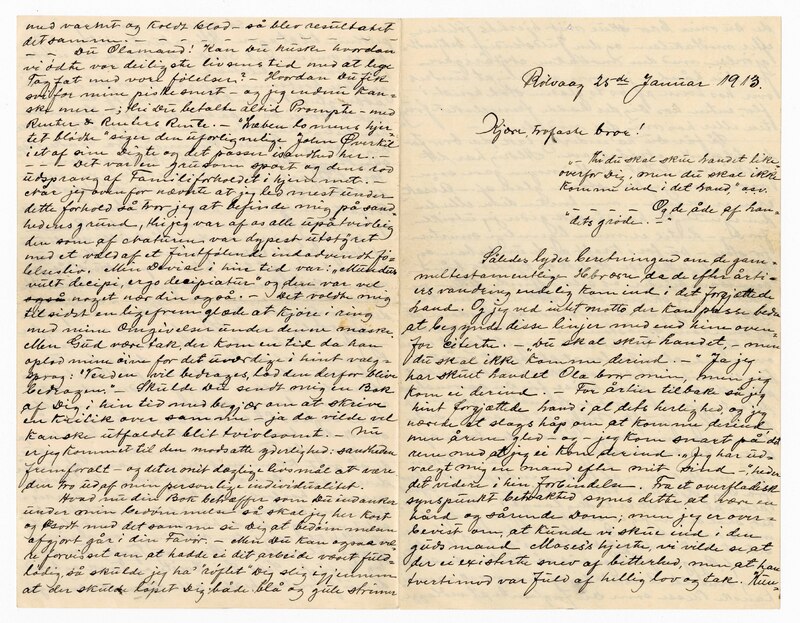 med varmt og koldt blod – så blev resultatet
det samme. – – – –
– Du Olamand! Kan Du huske hvordan
vi ødte vor deiligste livsens tid med at lege
Tag fat med vore følelser? – Hvordan Du fik
svie for mine piskesnert – og jeg endnu kan-
ske mere –; thi Du betalte altid Prompte – med
Renter & Renters Rente. – "Hæben
" siger den uforlignelig. John
i et af sine Digte og det passer isandhed her. –
– Det var en grusom sport og dens rod
udsprang af Familiforholdet i hjemmet. –
Når jeg ovenfor nævnte at jeg led mest under
dette forhold så tror jeg at befinde mig på sand-
hedens grund, thi jeg var af os alle upåtvivlelig
den som af naturen var dypest utstyret
med et væld af fintfølende indadvendt fø-
lelsesliv. Men Devise i hin tid var: "Mundus
vult decipi, ergo decipiatur" og den var vel
også noget nær din også. – Det voldte mig
til sidst en ligefrem glæde at kjøre i ring
med mine Omgivelser under denne maske.
Men Gud være tak, der kom en tid da han
oplod mine øine for det uværdige i hint valg-
sprog: "Verden vil bedrages, lad den derfor blive
bedragen." – Skulde Du sendt mig en Bok
af Dig i hin tid med begjær om at skrive
en kritik over samme – ja da vilde vel
kanske utfaldet blit tvivlsomt. – Nu
er jeg kommet til den modsatte yderlighed: sandheden
fremforalt – og det er mit daglige livsmål at være
den tro ud af min personlige individualitet.
Hvad nu din Bok betræffer som Du indanker
under min bedømmelse så skal jeg her kort
og godt med det samme si Dig at bedømmelsen
afgjort går i din Favør. – Men Du kan ogsaa væ-
re forvisset om at hadde ei det arbeide været fuld-
lødig, så skulde jeg ha' "røflet" Dig slig igjennem
at der skulde løpet Dig både blå og gule strimer
Rölvaag 25de Januar 1913.
Kjære, trofaste bror!
"– Thi du skal skue landet like-
overfor Dig, men du skal ikke
komme ind i det land" osv.
"– – – – Og de åde af lan-
dets grøde. –"
Således lyder beretningen om de gam-
meltestamentlige Hebræere da de efter årti-
ers vandring endelig kom ind i det forjættede
land. Og jeg ved intet motto der kan passe bedre
at begynde disse linjer med end hine oven-
for citerte. – "Du skal skue landet, – men
du skal ikke komme derind. –" Ja jeg
har skuet landet Ola bror min, men jeg
kom ei derind. – For årtier tilbake så jeg
hint forjættede land i al dets herlighed, og jeg
nærede et slags håp om at komme derind
men årene gled – og jeg kom snart på det
rene med at jeg ei kom derind. – "Jeg har ud-
valgt mig en mand efter mit sind –" heder
det videre i hin fortælling. Fra et overfladisk
synspunkt betraktet synes dette at være en
hård og sårende Dom; men jeg er over-
bevist om, at kunde vi skue ind i den
guds mand Moses's hjerte, vi vilde se at
der ei existerte snev af bitterhed, men at han
tvertimod var fuld af hellig lov og tak. Kun-